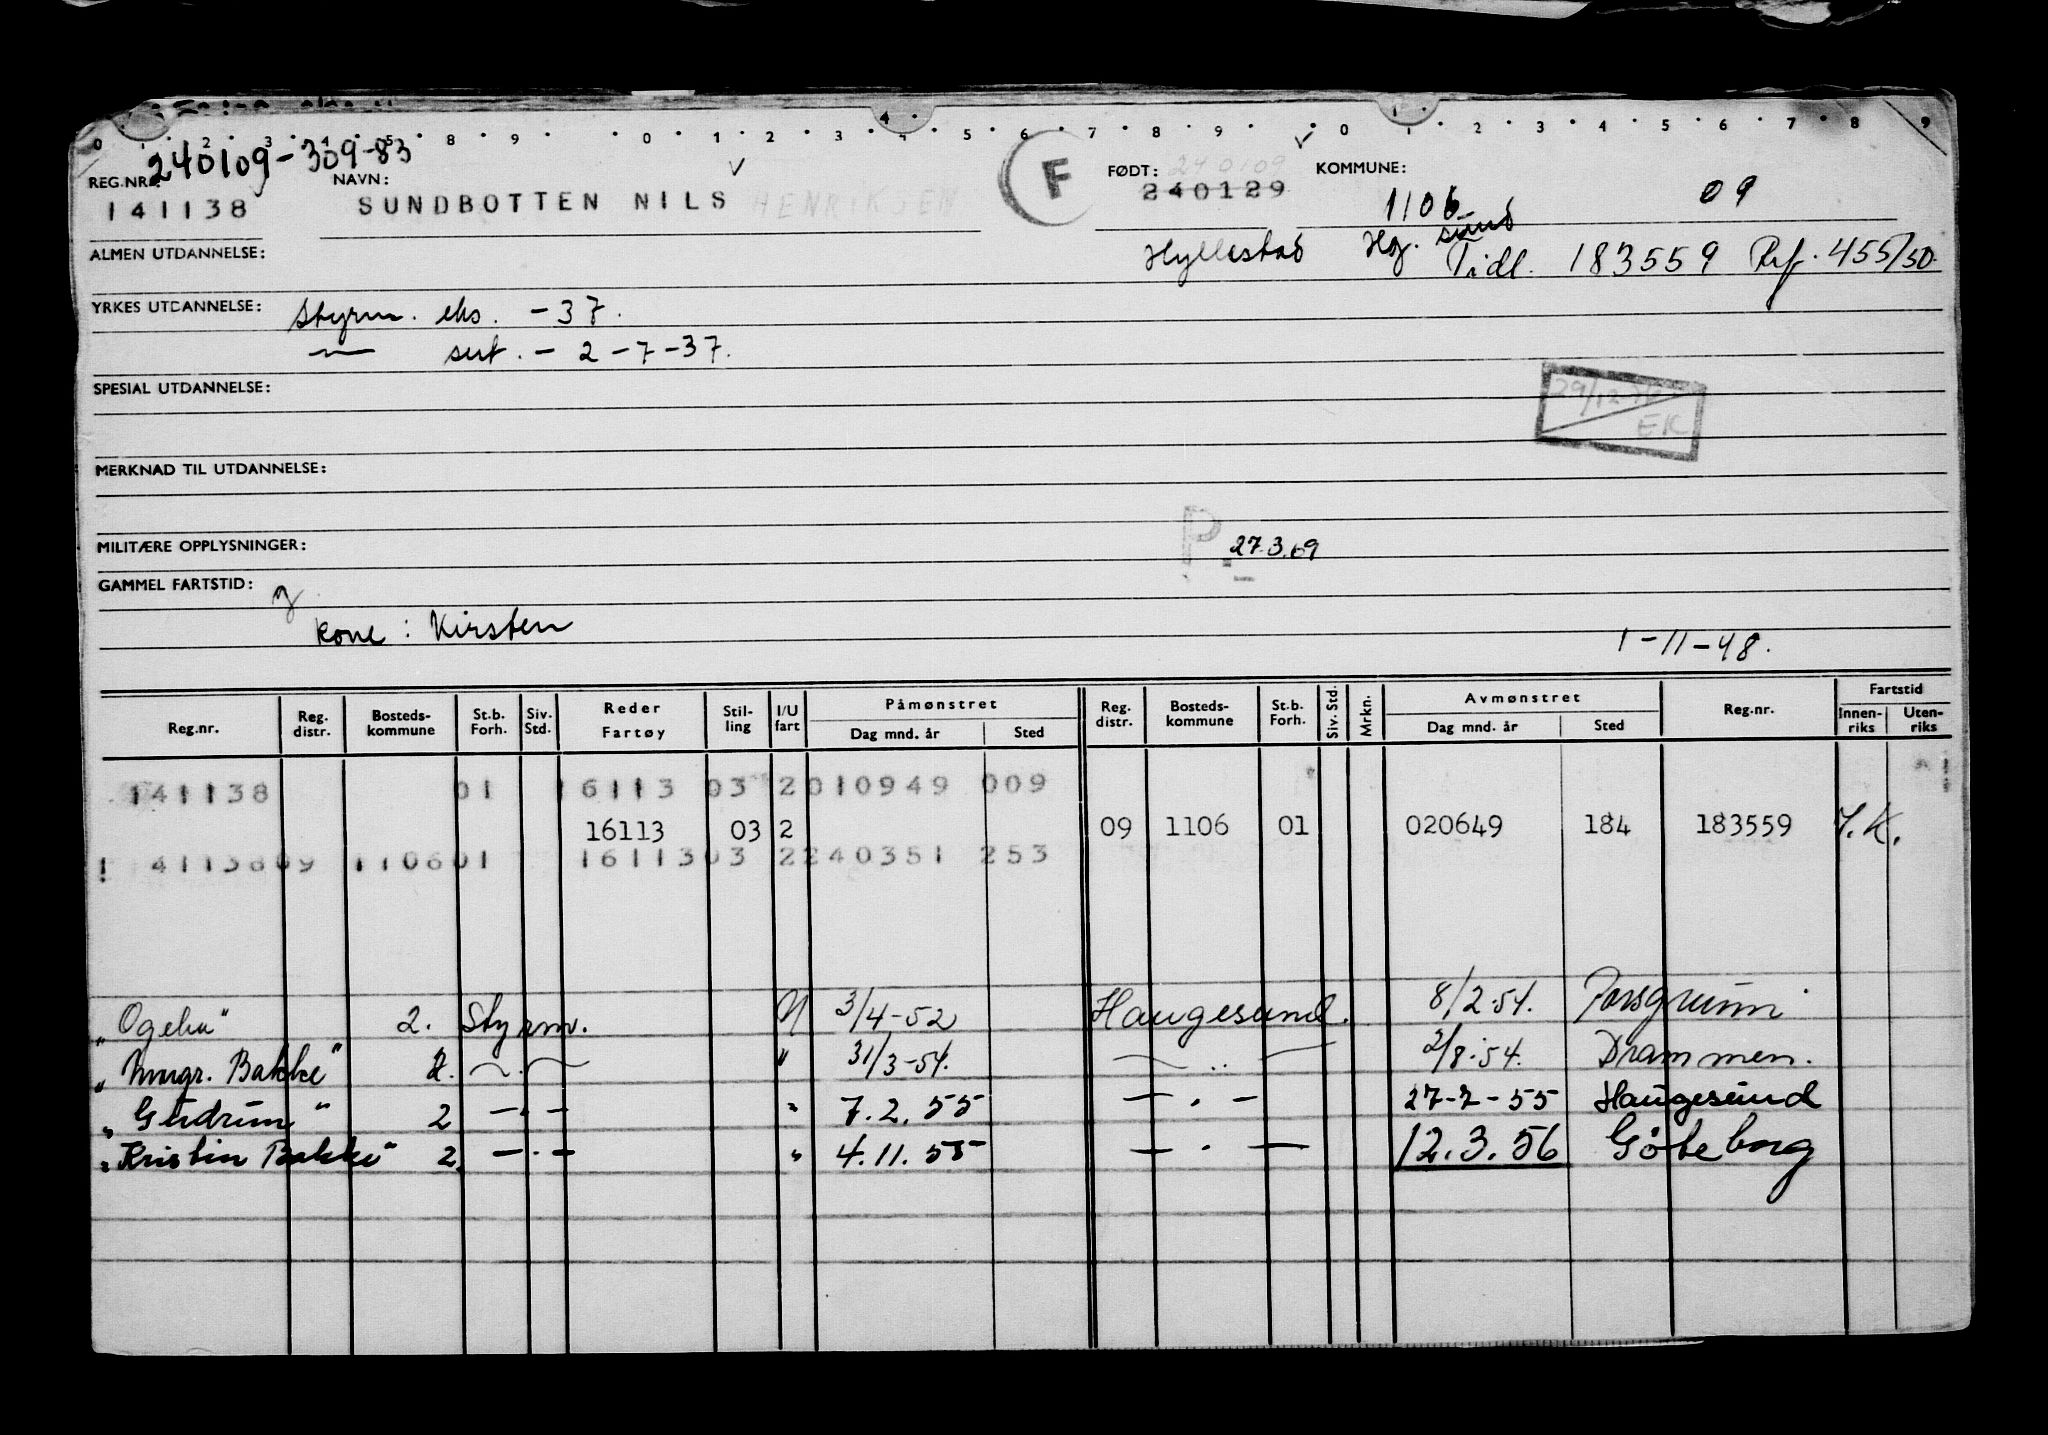 0 1 2 3 4 5 8 9 0 1 2 3 4 5 6 7 8 9 0 1 2 3 4 5 6 7 8 9
240109-309-83
REG.NR.: NAVN: F FØDT: 240109 KOMMUNE:
141138 SUNDBOTTEN NILS HENRIKSEN 240129 1106 09
ALMEN UTDANNELSE: Hyllestad Hg.sund Tidl. 183559 Ref. 455/50
YRKES UTDANNELSE: Styrm. eks. -37.
sert. - 2-7-37.
SPESIAL UTDANNELSE: 29/12
EK
MERKNAD TIL UTDANNELSE:
MILITÆRE OPPLYSNINGER: P. 27.3.69
GAMMEL FARTSTID:
kone: Kirsten 1-11-48.
Reg.nr. Reg. distr. Bosteds-kommune St.b. Forh. Siv. Std. Reder Fartøy Stil-ling I/U fart Påmønstret Dag mnd. år Sted Reg. distr. Bosteds-kommune St.b. Forh. Siv. Std. Mrkn. Avmønstret Dag mnd. år Sted Reg.nr. Fartstid Innen-riks Uten-riks
141138 01 16113 03 2 010949 009
16113 03 2 09 1106 01 020649 184 183559 J.K.
! 41138 09 1106 01 16113 03 2 240351 253
"Ogeka" 2. Styrm. U 3/4-52 Haugesund. 8/2-54. Porsgrunn.
"Margr. Bakke" 2. — " — " 31/3-54. — " — 2/8-54. Drammen.
"Gudrun" 2 — " — " 7.2.55 — " — 27-7-55 Haugesund
"Kristin Bakke" 2. — " — " 4.11.55 — " — 12.3.56 Göteborg